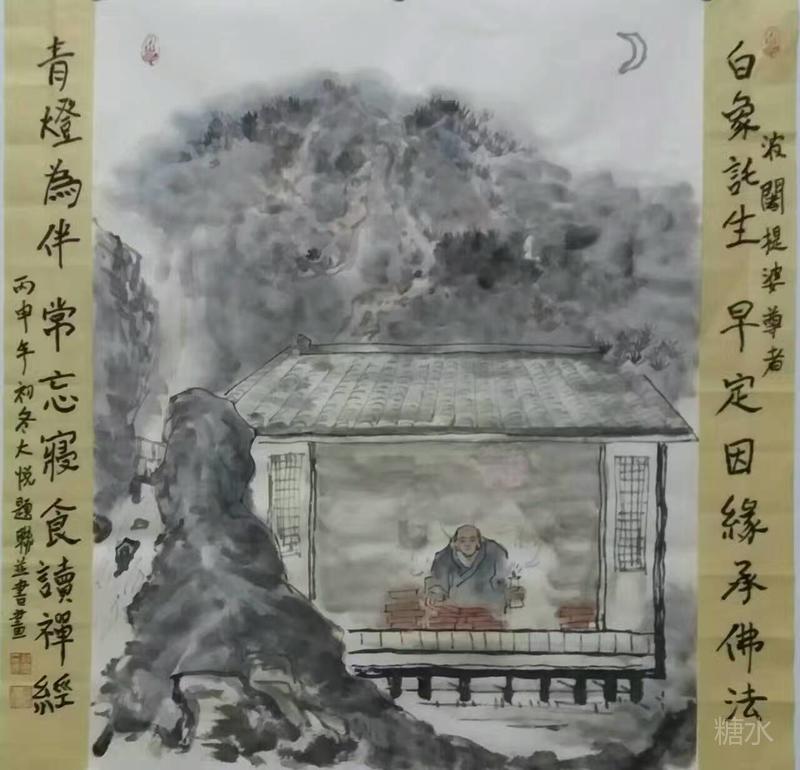 白象託生早定因緣承佛法
波闍提婆尊者
青燈為伴常忘寢食讀禪經
丙申年初冬大悅題聯並書畫
糖水